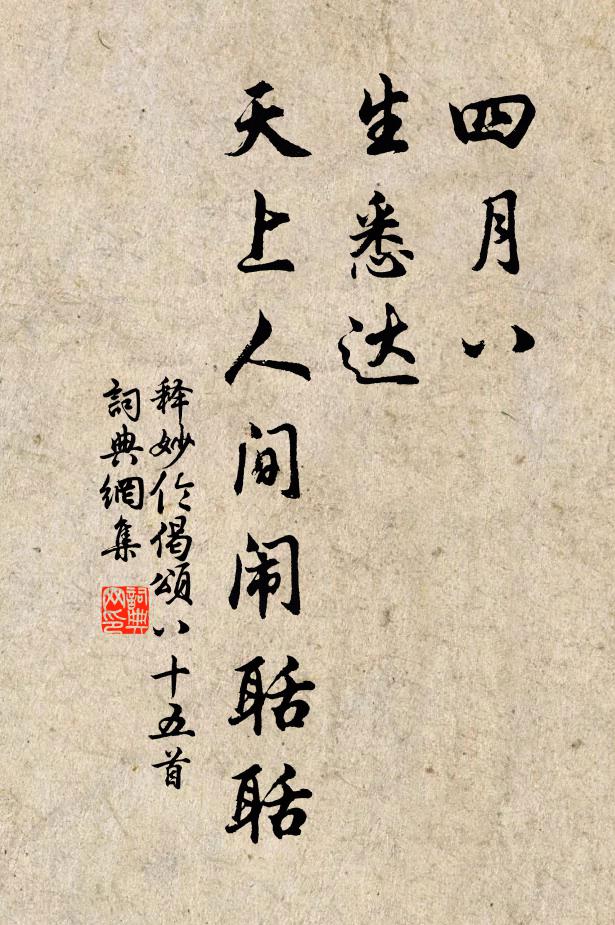 四月八
生悉达
天上人间闹聒聒
释妙伦偈颂八十五首
詞典網集
詞典
网印